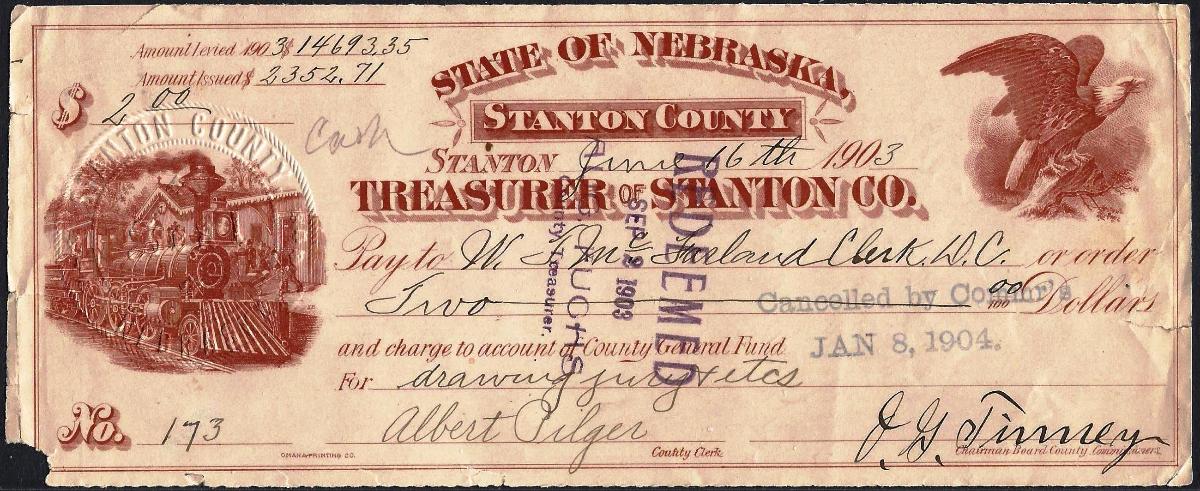 Amount levied 1903 $ 14693.35
Amount Issued $ 2352.71
$ 2 00
STATE OF NEBRASKA,
STANTON COUNTY
STANTON COUNTY
Cash
STANTON June 16th 1903
TREASURER OF STANTON CO.
Pay to W. F. McFarland Clerk, D.C. or order
Two 00/100 Dollars
and charge to account of County General Fund
For drawing jury & etcs
No. 173
Albert Pilger
County Clerk
J. G. Tinney
Chairman Board County Commissioners
OMAHA PRINTING CO.
REDEEMED
SEP 2 1903
PUCHS
County Treasurer.
Cancelled by Comm'rs
JAN 8, 1904.